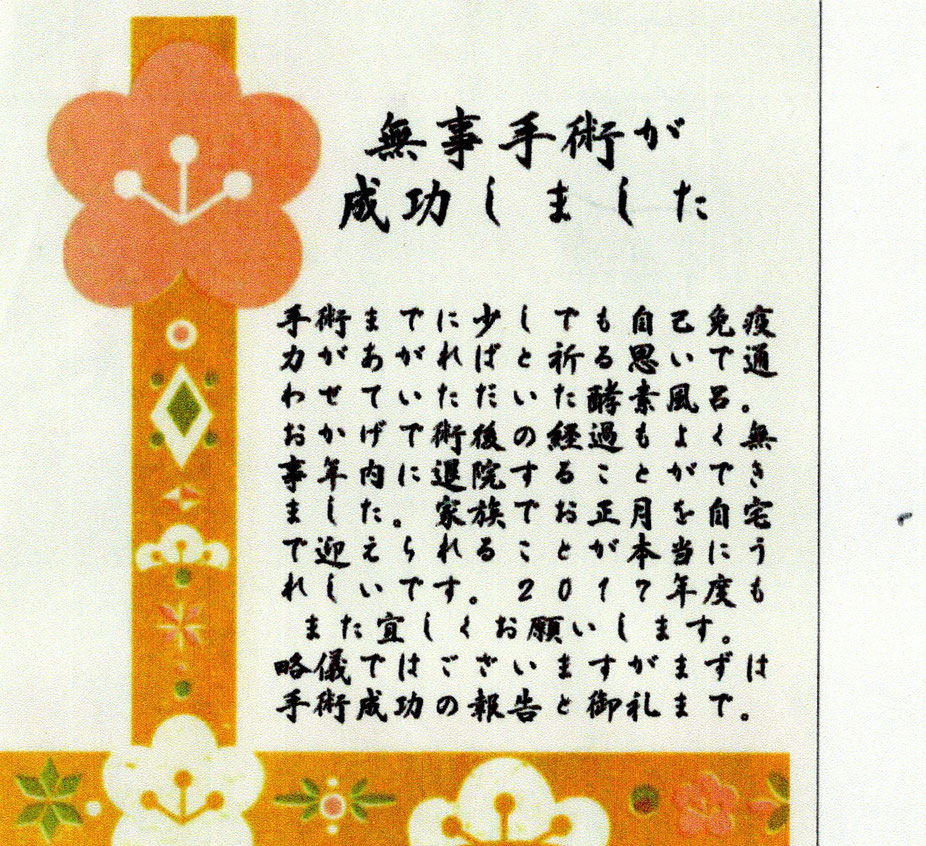 無事手術が
成功しました
手術までに少しでも自己免疫
力があがればと祈る思いで通
わせていただいた酵素風呂。
おかげで術後の経過もよく無
事年内に退院することができ
ました。家族でお正月を自宅
で迎えられることが本当にう
れしいです。2017年度も
また宜しくお願いします。
略儀ではございますがまずは
手術成功の報告と御礼まで。